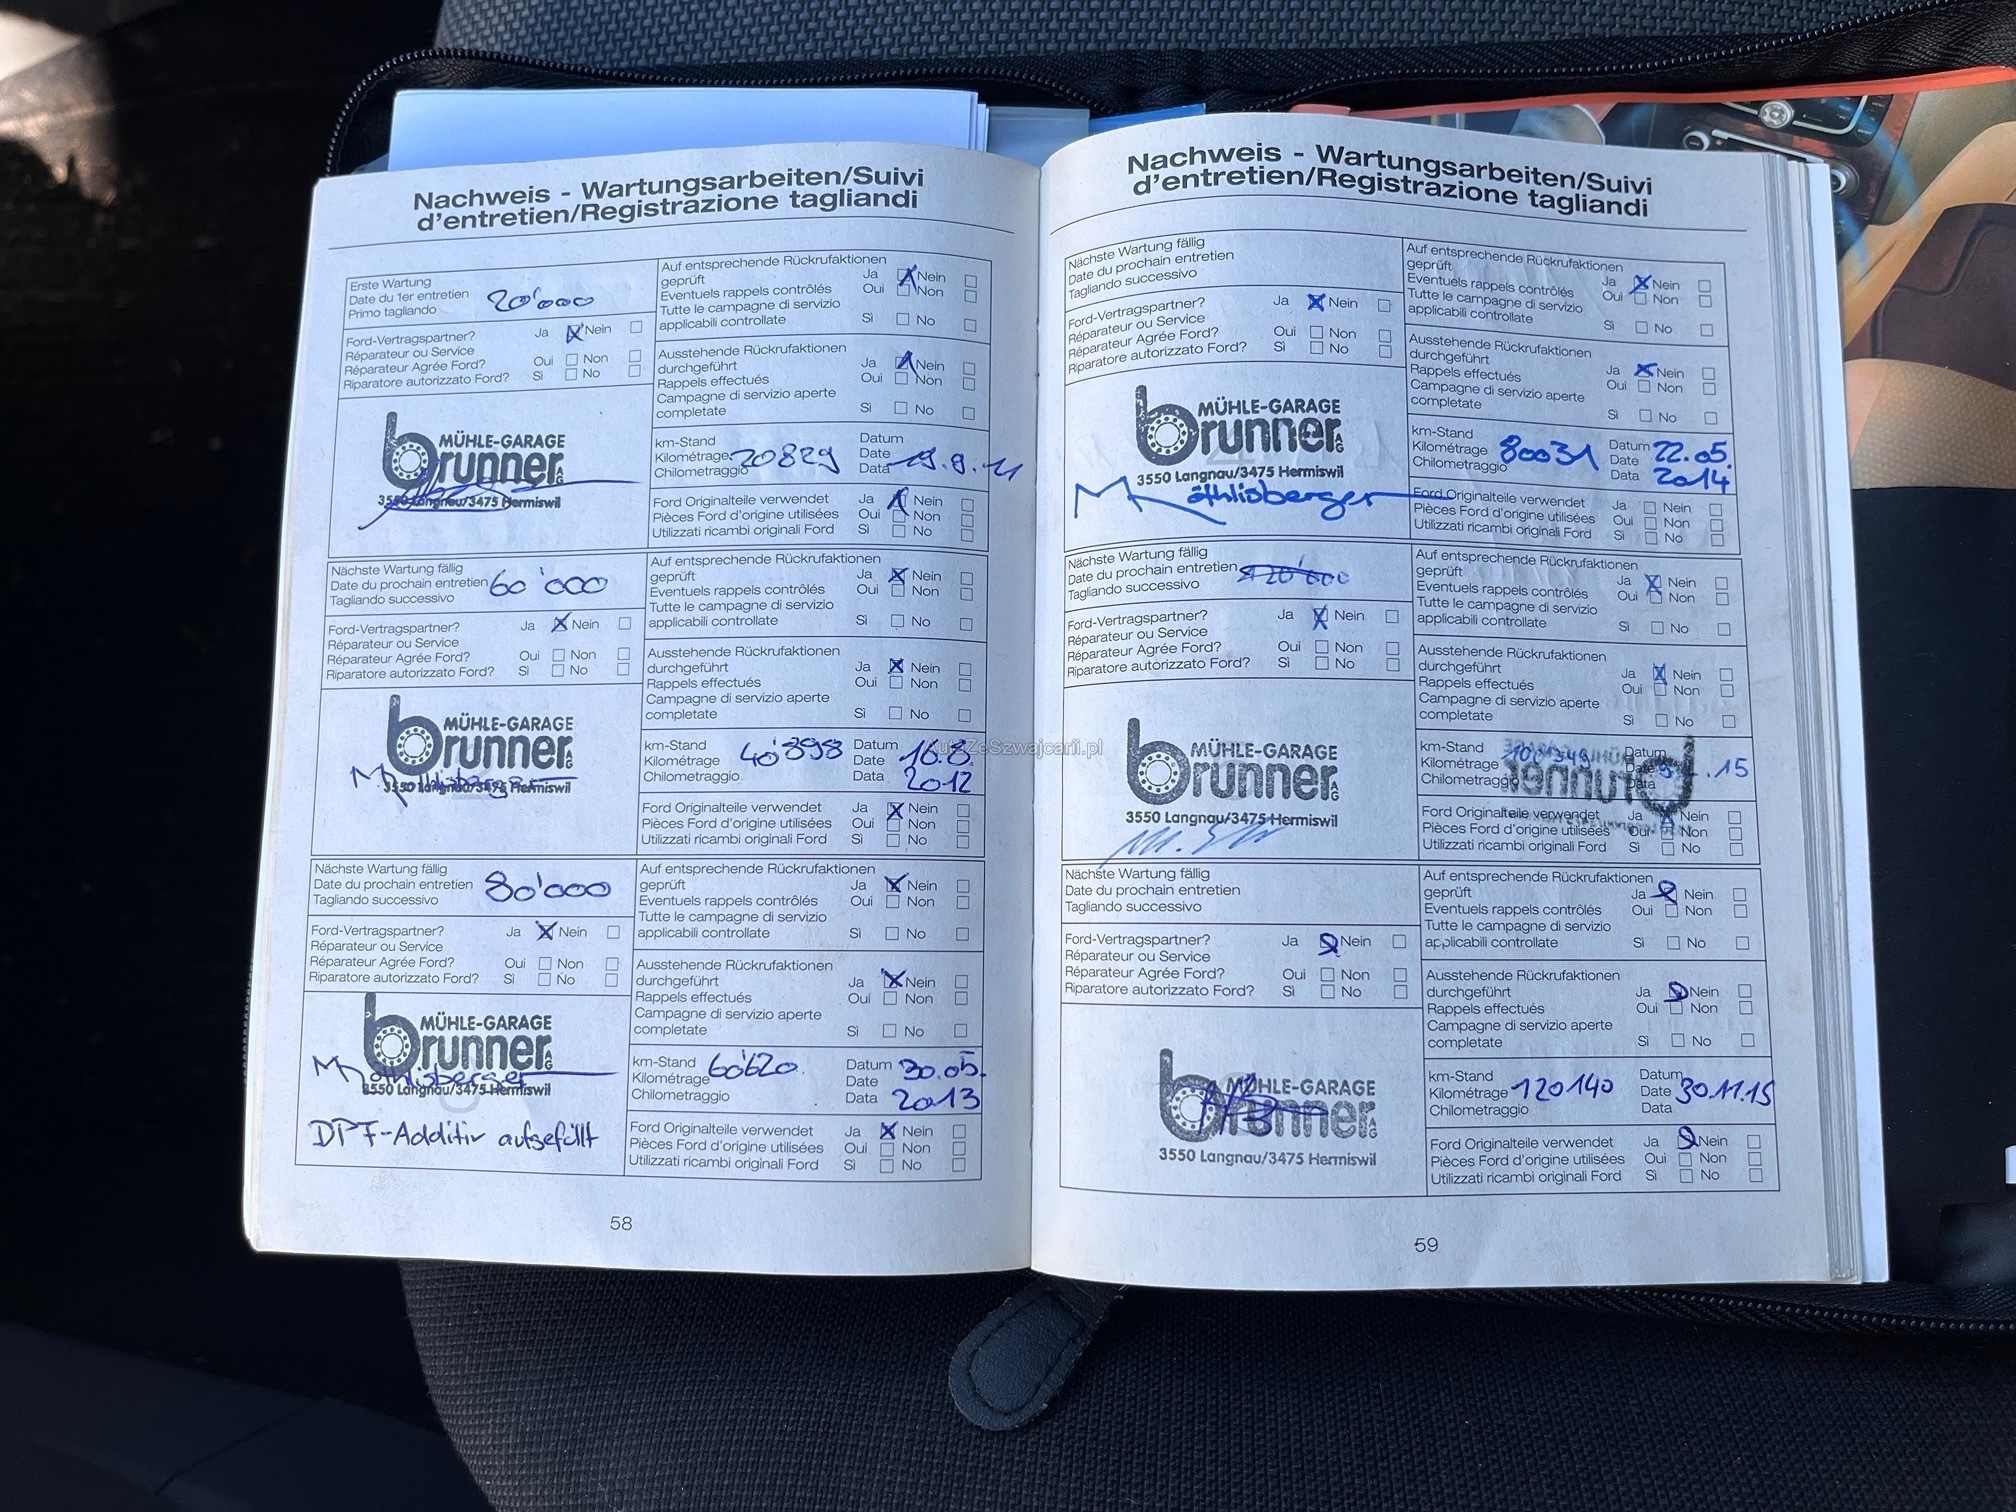 Nachweis - Wartungsarbeiten/Suivi
d'entretien/Registrazione tagliandi
Erste Wartung
Date du 1er entretien 20'000
Primo tagliando
Ford-Vertragspartner? Ja Nein
Réparateur ou Service
Réparateur Agrée Ford? Oui Non
Riparatore autorizzato Ford? Sì No
MÜHLE-GARAGE
brunner AG
3550 Langnau/3475 Hermiswil
Auf entsprechende Rückrufaktionen
geprüft Ja Nein
Eventuels rappels contrôlés Oui Non
Tutte le campagne di servizio
applicabili controllate Sì No
Ausstehende Rückrufaktionen
durchgeführt Ja Nein
Rappels effectués Oui Non
Campagne di servizio aperte
completate Sì No
km-Stand Datum
Kilométrage 20829 Date 19.9.11
Chilometraggio Data
Ford Originalteile verwendet Ja Nein
Pièces Ford d'origine utilisées Oui Non
Utilizzati ricambi originali Ford Sì No
Nächste Wartung fällig
Date du prochain entretien 60'000
Tagliando successivo
Ford-Vertragspartner? Ja Nein
Réparateur ou Service
Réparateur Agrée Ford? Oui Non
Riparatore autorizzato Ford? Sì No
MÜHLE-GARAGE
brunner AG
3550 Langnau/3475 Hermiswil
Auf entsprechende Rückrufaktionen
geprüft Ja Nein
Eventuels rappels contrôlés Oui Non
Tutte le campagne di servizio
applicabili controllate Sì No
Ausstehende Rückrufaktionen
durchgeführt Ja Nein
Rappels effectués Oui Non
Campagne di servizio aperte
completate Sì No
km-Stand 40'898 Datum 16.8.
Kilométrage Date 2012
Chilometraggio Data
Ford Originalteile verwendet Ja Nein
Pièces Ford d'origine utilisées Oui Non
Utilizzati ricambi originali Ford Sì No
Nächste Wartung fällig
Date du prochain entretien 80'000
Tagliando successivo
Ford-Vertragspartner? Ja Nein
Réparateur ou Service
Réparateur Agrée Ford? Oui Non
Riparatore autorizzato Ford? Sì No
MÜHLE-GARAGE
brunner AG
3550 Langnau/3475 Hermiswil
DPF-Additiv aufgefüllt
Auf entsprechende Rückrufaktionen
geprüft Ja Nein
Eventuels rappels contrôlés Oui Non
Tutte le campagne di servizio
applicabili controllate Sì No
Ausstehende Rückrufaktionen
durchgeführt Ja Nein
Rappels effectués Oui Non
Campagne di servizio aperte
completate Sì No
km-Stand 60620 Datum 30.05.
Kilométrage Date 2013
Chilometraggio Data
Ford Originalteile verwendet Ja Nein
Pièces Ford d'origine utilisées Oui Non
Utilizzati ricambi originali Ford Sì No
58
Nachweis - Wartungsarbeiten/Suivi
d'entretien/Registrazione tagliandi
Nächste Wartung fällig
Date du prochain entretien
Tagliando successivo
Ford-Vertragspartner? Ja Nein
Réparateur ou Service
Réparateur Agrée Ford? Oui Non
Riparatore autorizzato Ford? Sì No
MÜHLE-GARAGE
brunner AG
3550 Langnau/3475 Hermiswil
M Röthlisberger
Auf entsprechende Rückrufaktionen
geprüft Ja Nein
Eventuels rappels contrôlés Oui Non
Tutte le campagne di servizio
applicabili controllate Sì No
Ausstehende Rückrufaktionen
durchgeführt Ja Nein
Rappels effectués Oui Non
Campagne di servizio aperte
completate Sì No
km-Stand Datum 22.05.
Kilométrage 80031 Date 2014
Chilometraggio Data
Ford Originalteile verwendet Ja Nein
Pièces Ford d'origine utilisées Oui Non
Utilizzati ricambi originali Ford Sì No
Nächste Wartung fällig
Date du prochain entretien 120'000
Tagliando successivo
Ford-Vertragspartner? Ja Nein
Réparateur ou Service
Réparateur Agrée Ford? Oui Non
Riparatore autorizzato Ford? Sì No
MÜHLE-GARAGE
brunner AG
3550 Langnau/3475 Hermiswil
Auf entsprechende Rückrufaktionen
geprüft Ja Nein
Eventuels rappels contrôlés Oui Non
Tutte le campagne di servizio
applicabili controllate Sì No
Ausstehende Rückrufaktionen
durchgeführt Ja Nein
Rappels effectués Oui Non
Campagne di servizio aperte
completate Sì No
km-Stand Datum
Kilométrage 100'349 Date .15
Chilometraggio Data
Ford Originalteile verwendet Ja Nein
Pièces Ford d'origine utilisées Oui Non
Utilizzati ricambi originali Ford Sì No
Nächste Wartung fällig
Date du prochain entretien
Tagliando successivo
Ford-Vertragspartner? Ja Nein
Réparateur ou Service
Réparateur Agrée Ford? Oui Non
Riparatore autorizzato Ford? Sì No
MÜHLE-GARAGE
brunner AG
3550 Langnau/3475 Hermiswil
Auf entsprechende Rückrufaktionen
geprüft Ja Nein
Eventuels rappels contrôlés Oui Non
Tutte le campagne di servizio
applicabili controllate Sì No
Ausstehende Rückrufaktionen
durchgeführt Ja Nein
Rappels effectués Oui Non
Campagne di servizio aperte
completate Sì No
km-Stand Datum
Kilométrage 120140 Date 30.11.15
Chilometraggio Data
Ford Originalteile verwendet Ja Nein
Pièces Ford d'origine utilisées Oui Non
Utilizzati ricambi originali Ford Sì No
59
AutaZeSzwajcarii.pl